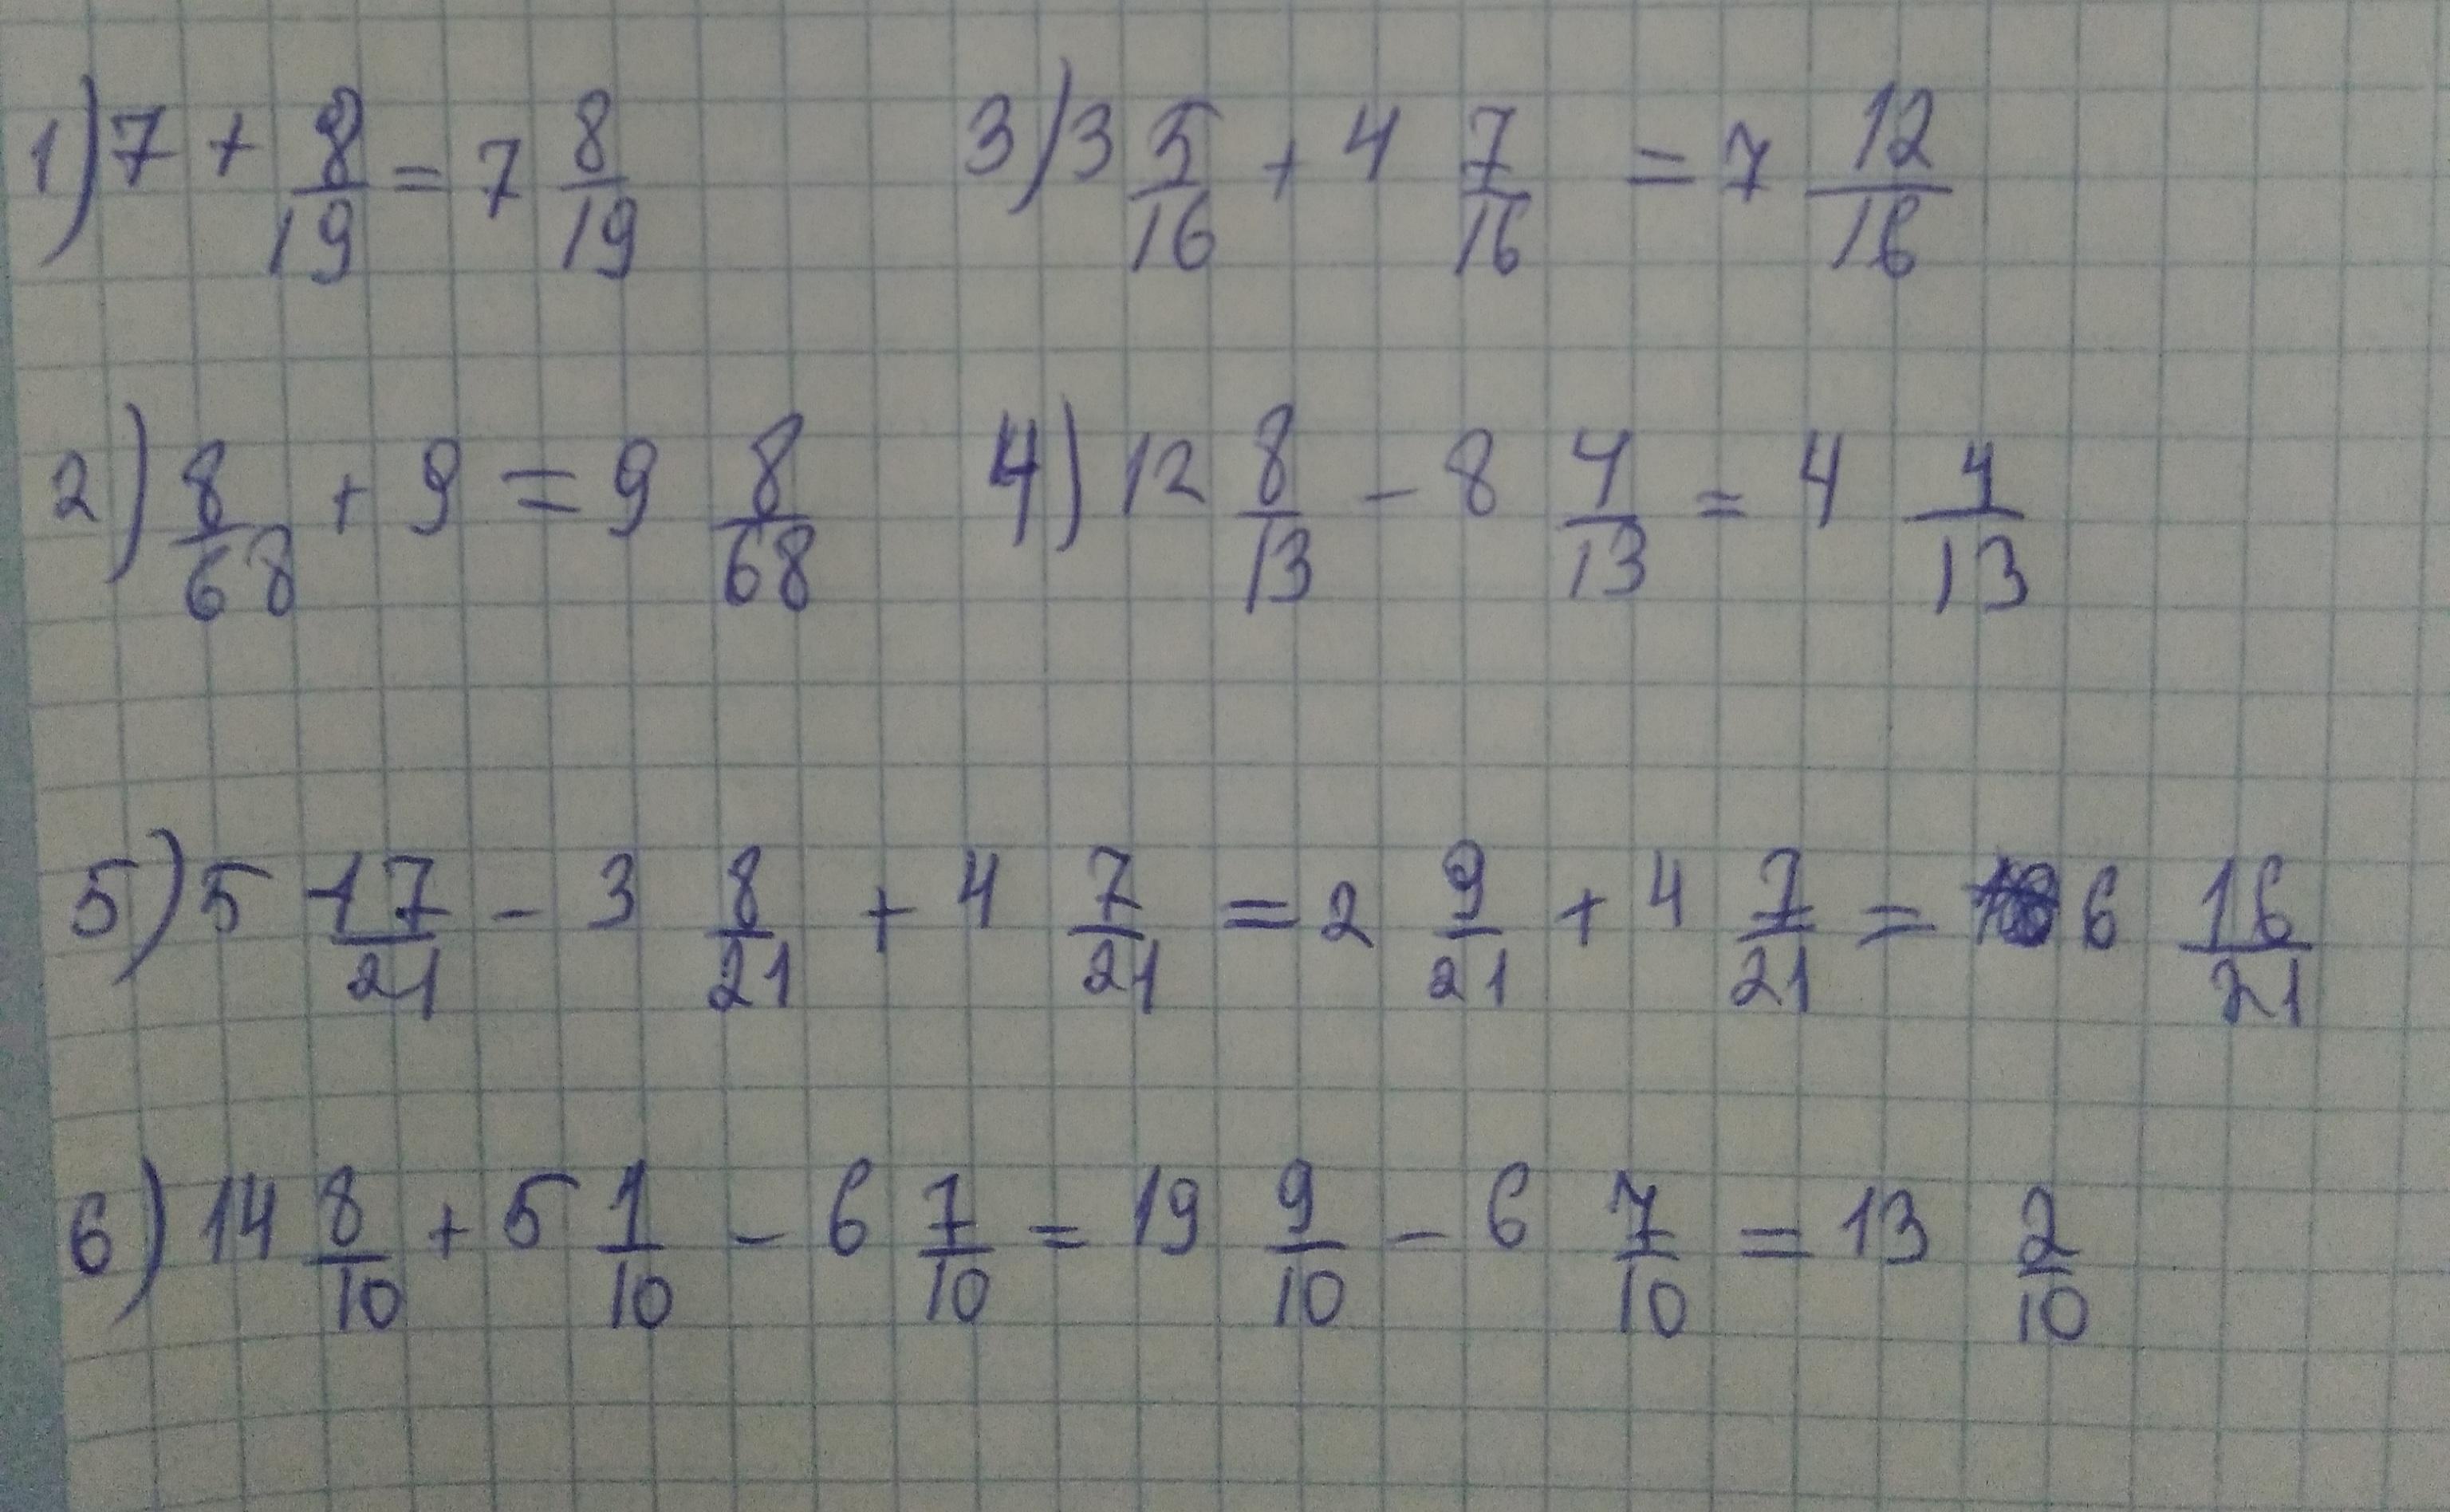 1) 7 + 8/19 = 7 8/19    3) 3 5/16 + 4 7/16 = 7 12/16
2) 8/68 + 9 = 9 8/68    4) 12 8/13 - 8 4/13 = 4 4/13
5) 5 17/21 - 3 8/21 + 4 7/21 = 2 9/21 + 4 7/21 = 6 16/21
6) 14 8/10 + 5 1/10 - 6 7/10 = 19 9/10 - 6 7/10 = 13 2/10